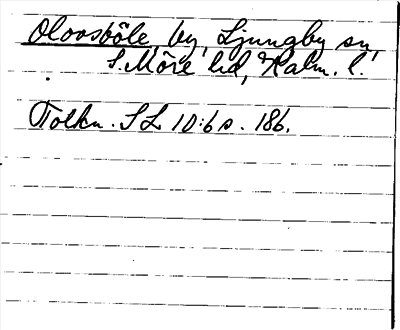 Olovsböle, by, Ljungby sn,
S. Möre hd, Kalm. l.
Tolkn. SL 10:6 s. 186.